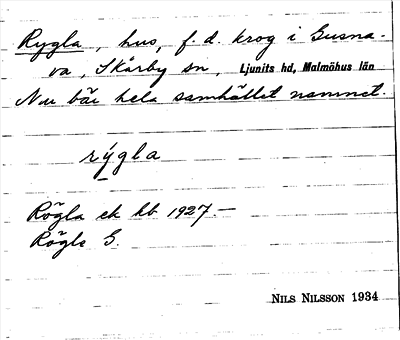 Rygla, hus, f. d. krog i Gusna-
va, Skårby sn, Ljunits hd, Malmöhus län
Nu bär hela samhället namnet.
rýgla
Rögla ek kb 1927.—
Rögle G.
NILS NILSSON 1934